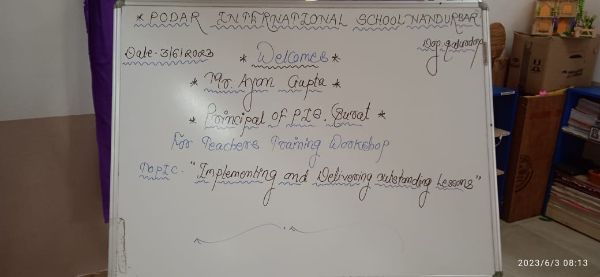 * PODAR INTERNATIONAL SCHOOL NANDURBAR
Date - 3/6/2023
* Welcomes *
* Mr. Ayan Gupta *
* Principal of P.I.S. Surat *
For Teachers Training Workshop
TOPIC - "Implementing and Delivering outstanding Lessons"
2023/6/3 08:13